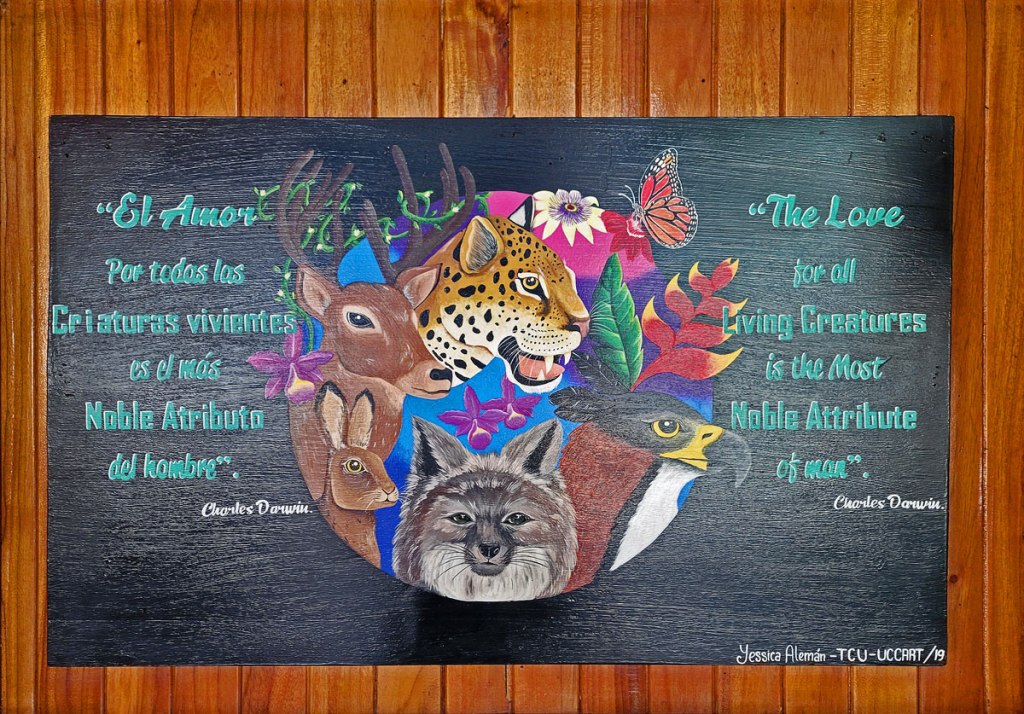 “El Amor
Por todas las
Criaturas vivientes
es el más
Noble Atributo
del hombre”.
Charles Darwin.
“The Love
for all
Living Creatures
is the Most
Noble Attribute
of man”.
Charles Darwin.
Yessica Alemán -TCU-UCCART/19